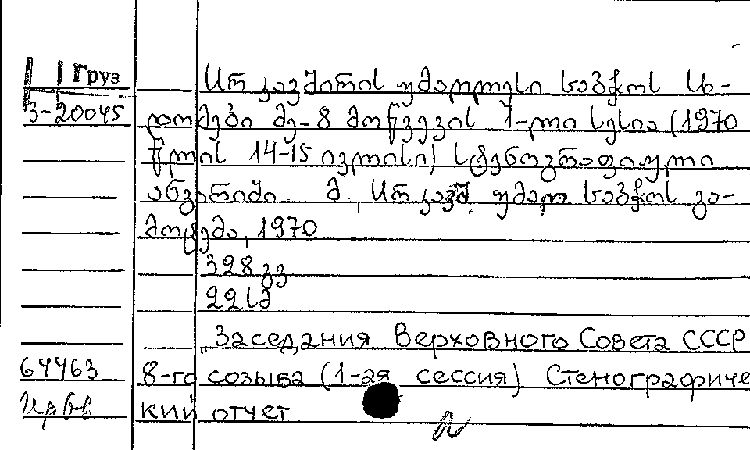 Груз
სსრ კავშირის უმაღლესი საბჭოს სხ-
3-20045 დომები მე-8 მოწვევის 1-ლი სესია (1970
წლის 14-15 ივლისი) სტენოგრაფიული
ანგარიში. მ. სსრ კავშ. უმაღ. საბჭოს გა-
მოცემა, 1970
328 გვ
22 სმ
Заседания Верховного Совета СССР
64463 8-го созыва (1-ая сессия) Стенографиче
кий отчет